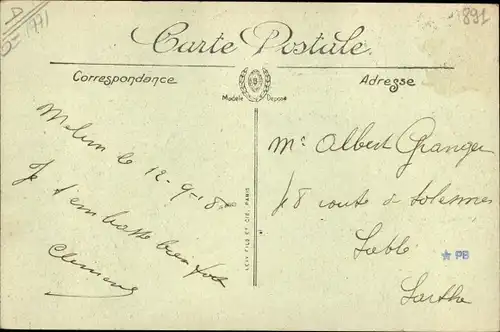 891
Carte Postale
Correspondance
Adresse
Modèle Déposé
Melun le 12-9-18
Je t'embrasse bien fort
Clémence
Mr Albert Granger
48 route de Solesmes
Sablé
Sarthe
LEVY FILS ET CIE, PARIS
PB